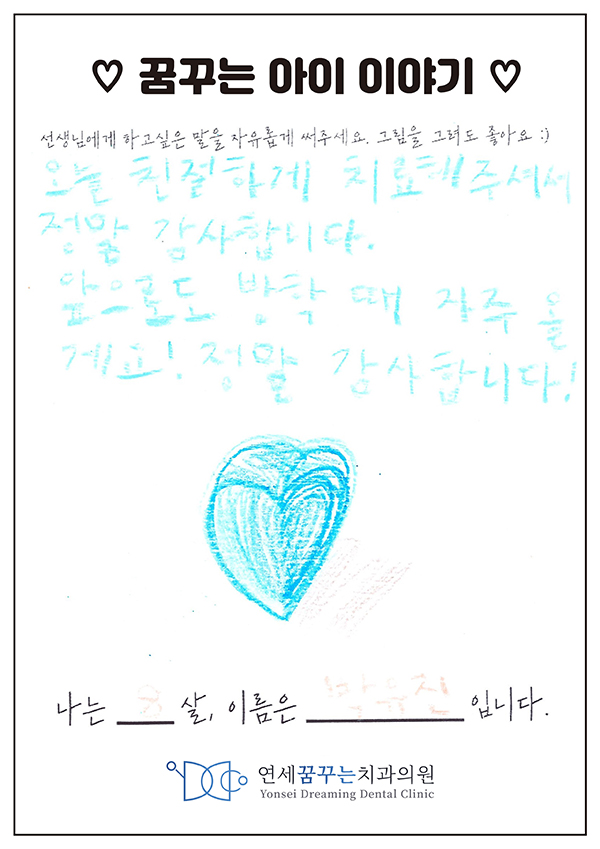 ♡ 꿈꾸는 아이 이야기 ♡
선생님에게 하고싶은 말을 자유롭게 써주세요. 그림을 그려도 좋아요 :)
오늘 친절하게 치료해주셔서
정말 감사합니다.
앞으로도 방학 때 자주 올
게요! 정말 감사합니다!
나는 8 살, 이름은 박유진 입니다.
연세꿈꾸는치과의원
Yonsei Dreaming Dental Clinic